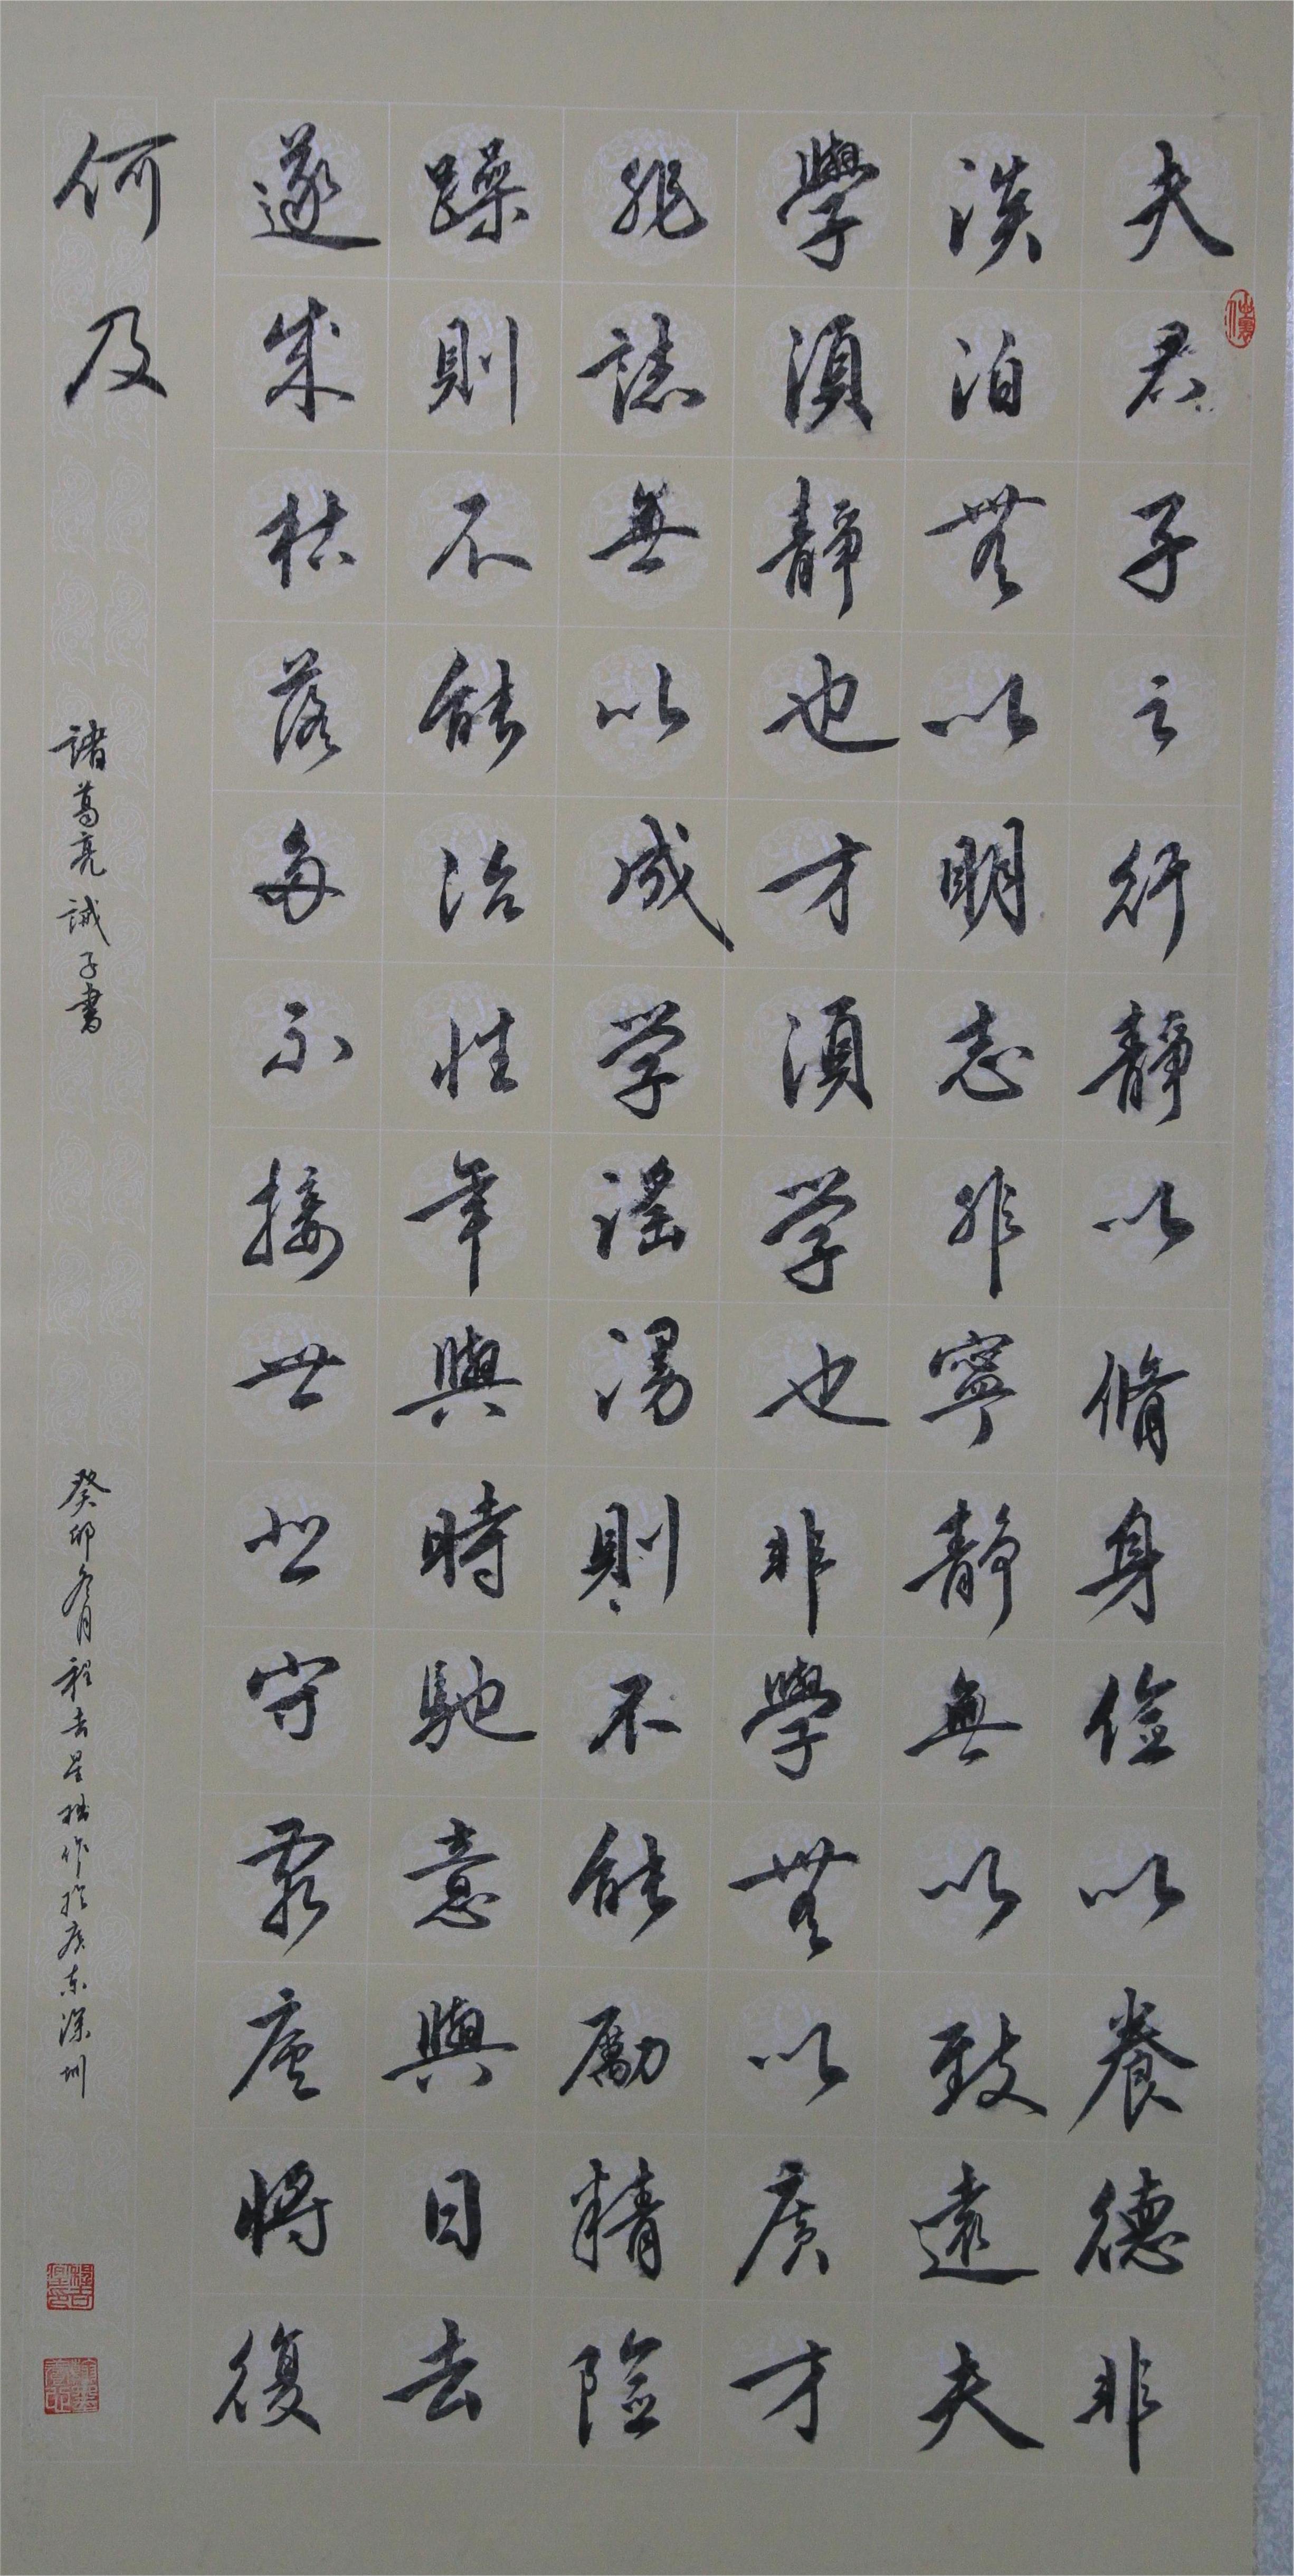 夫君子之行靜以脩身儉以養德非
淡泊無以明志非寧靜無以致遠夫
學須靜也才須学也非學無以廣才
非誌無以成学謠漫則不能勵精險
躁則不能治性年與時馳意與日去
遂成枯落多不接世悲守窮廬將復
何及
諸葛亮誡子書
癸卯冬月程吉星拙作於廣东深圳